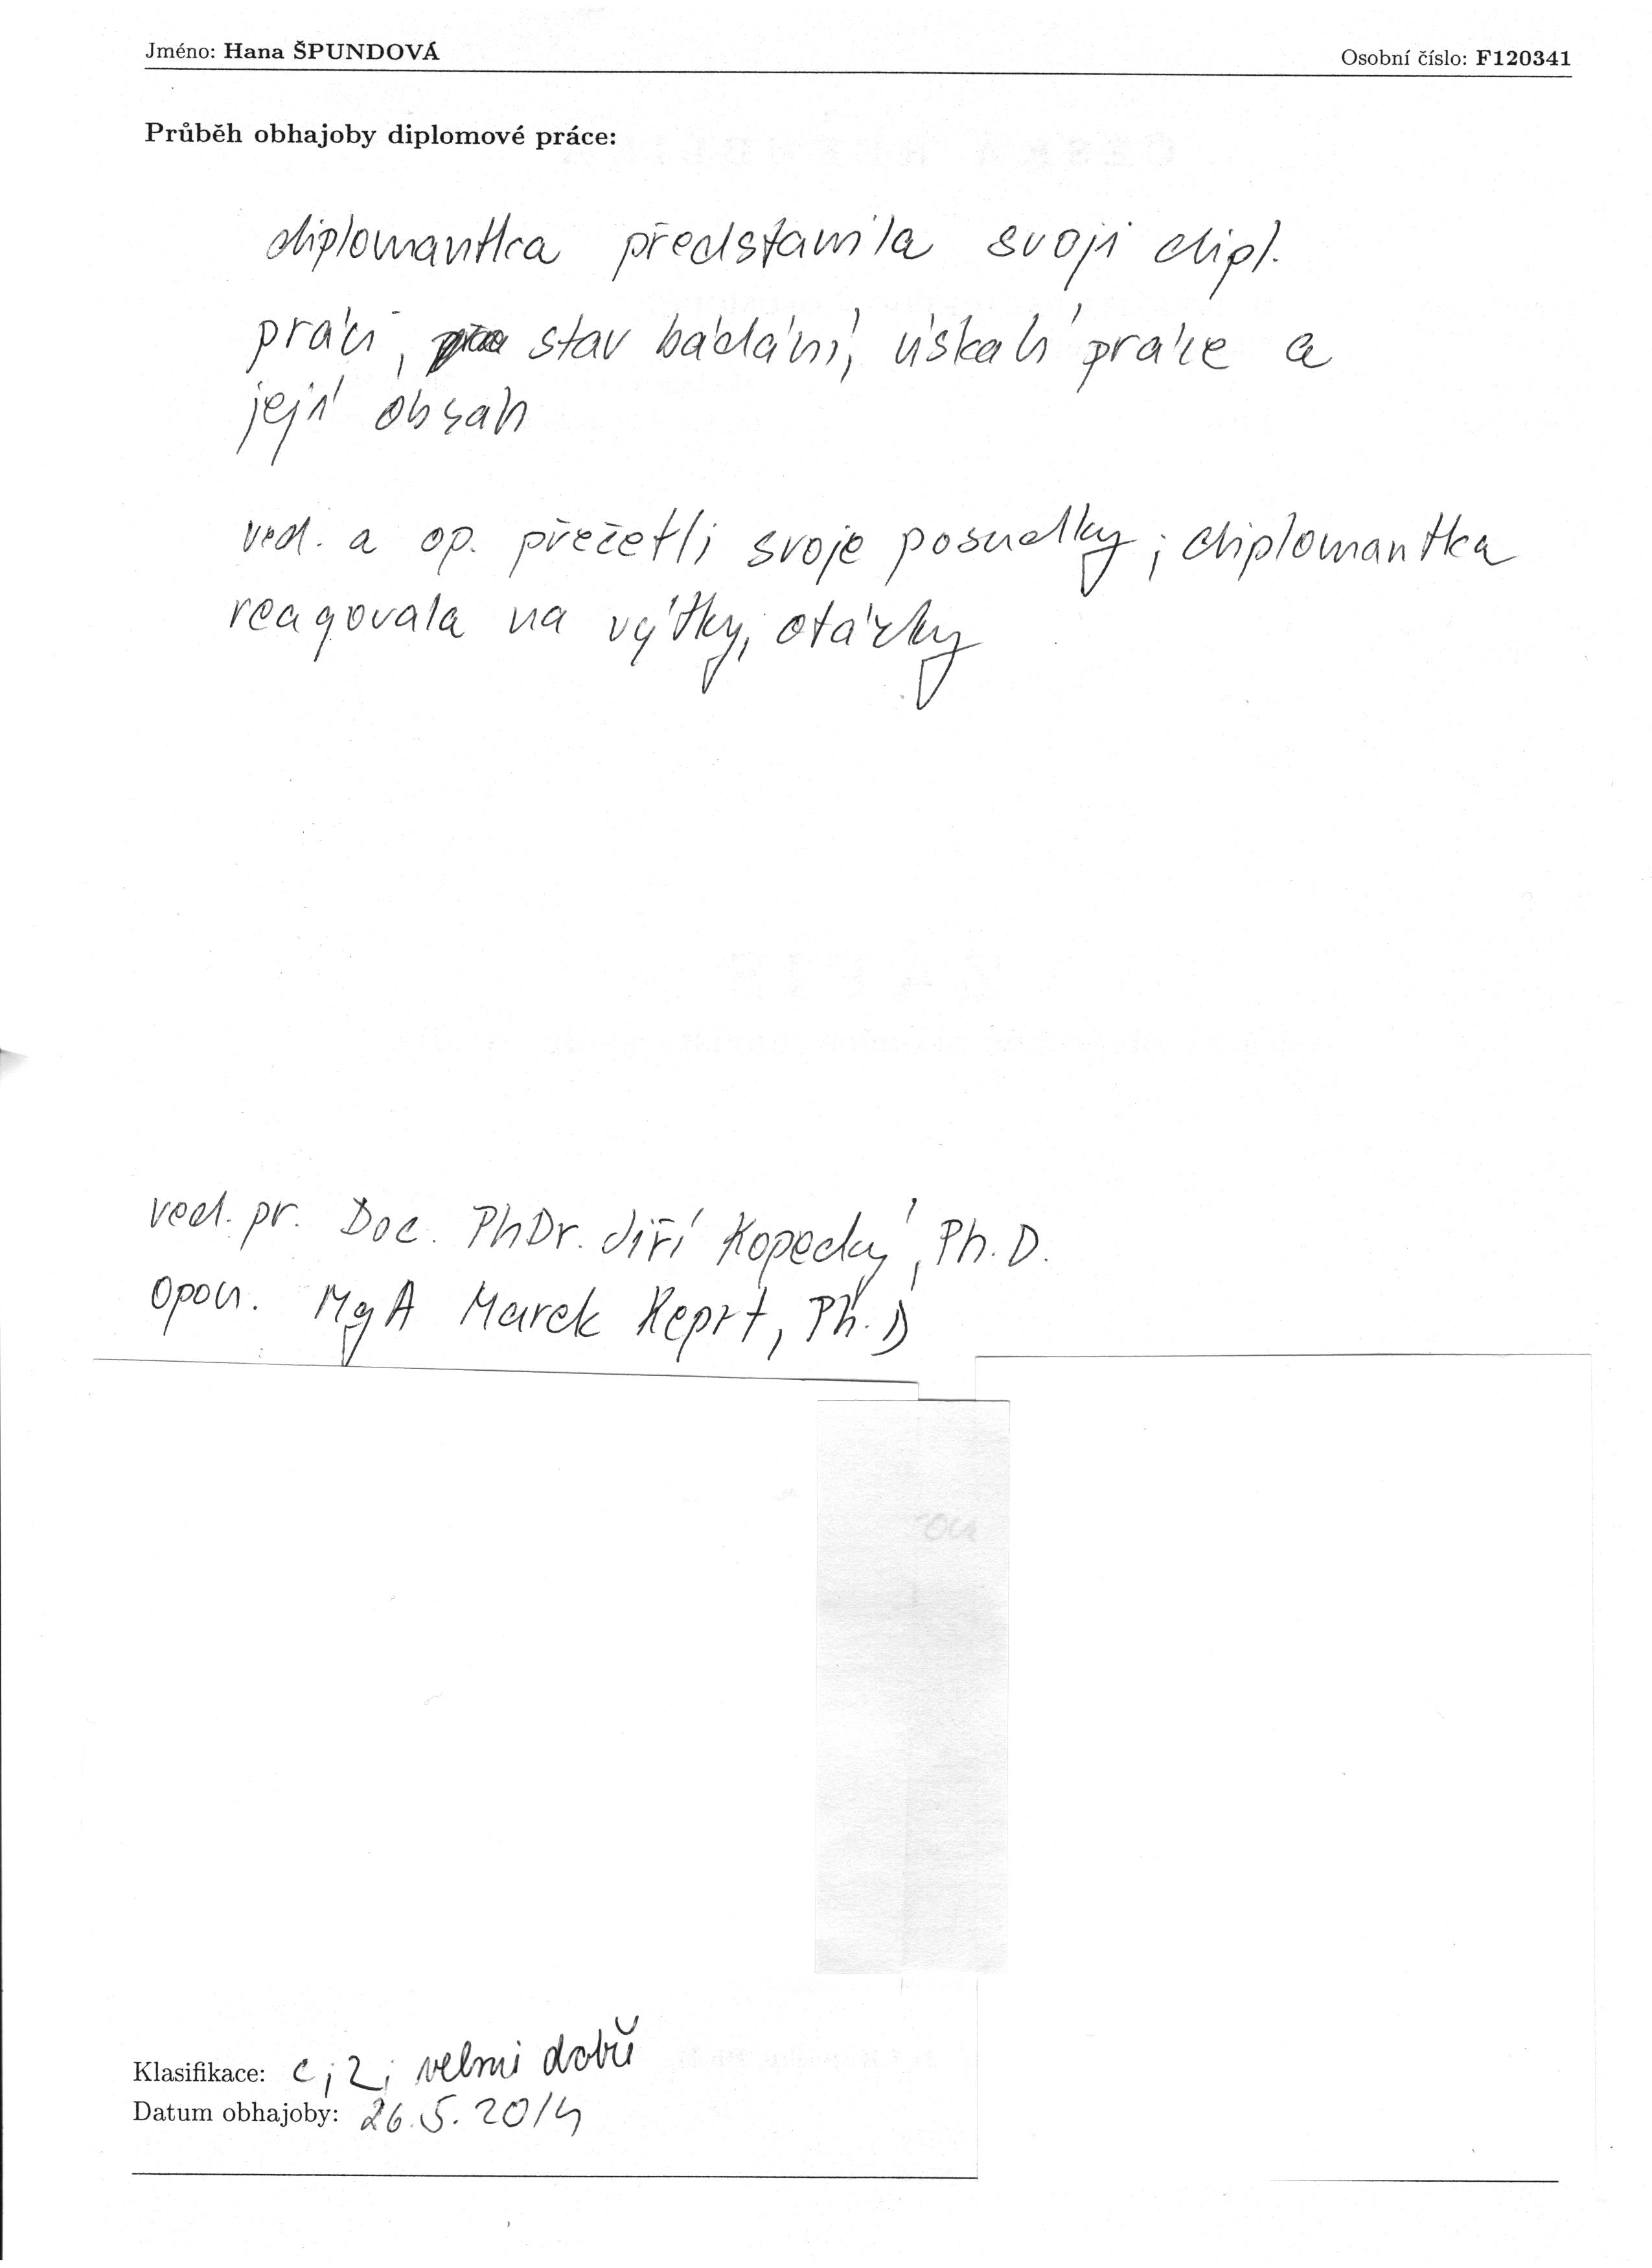 Jméno: Hana ŠPUNDOVÁ Osobní číslo: F120341
Průběh obhajoby diplomové práce:
diplomantka představila svoji dipl.
práci, stav bádání, úskalí práce a
její obsah
ved. a op. přečetli svoje posudky; diplomantka
reagovala na výtky, otázky
ved. pr. Doc. PhDr. Jiří Kopecký, Ph.D.
opon. MgA Marek Keprt, Ph.D
Klasifikace: C; 2; velmi dobře
Datum obhajoby: 26.5.2014